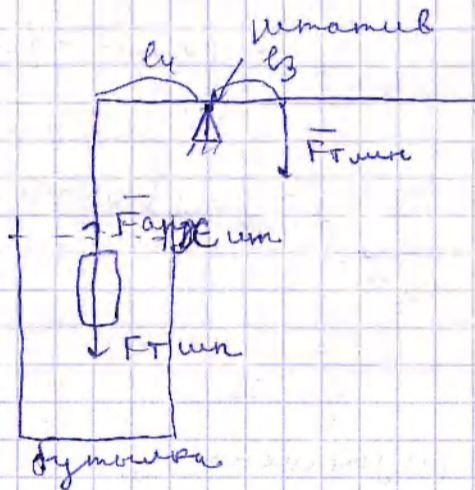 штатив
l₄ l₃
F̄т лин
F̄арх
Fт шп
бутылка